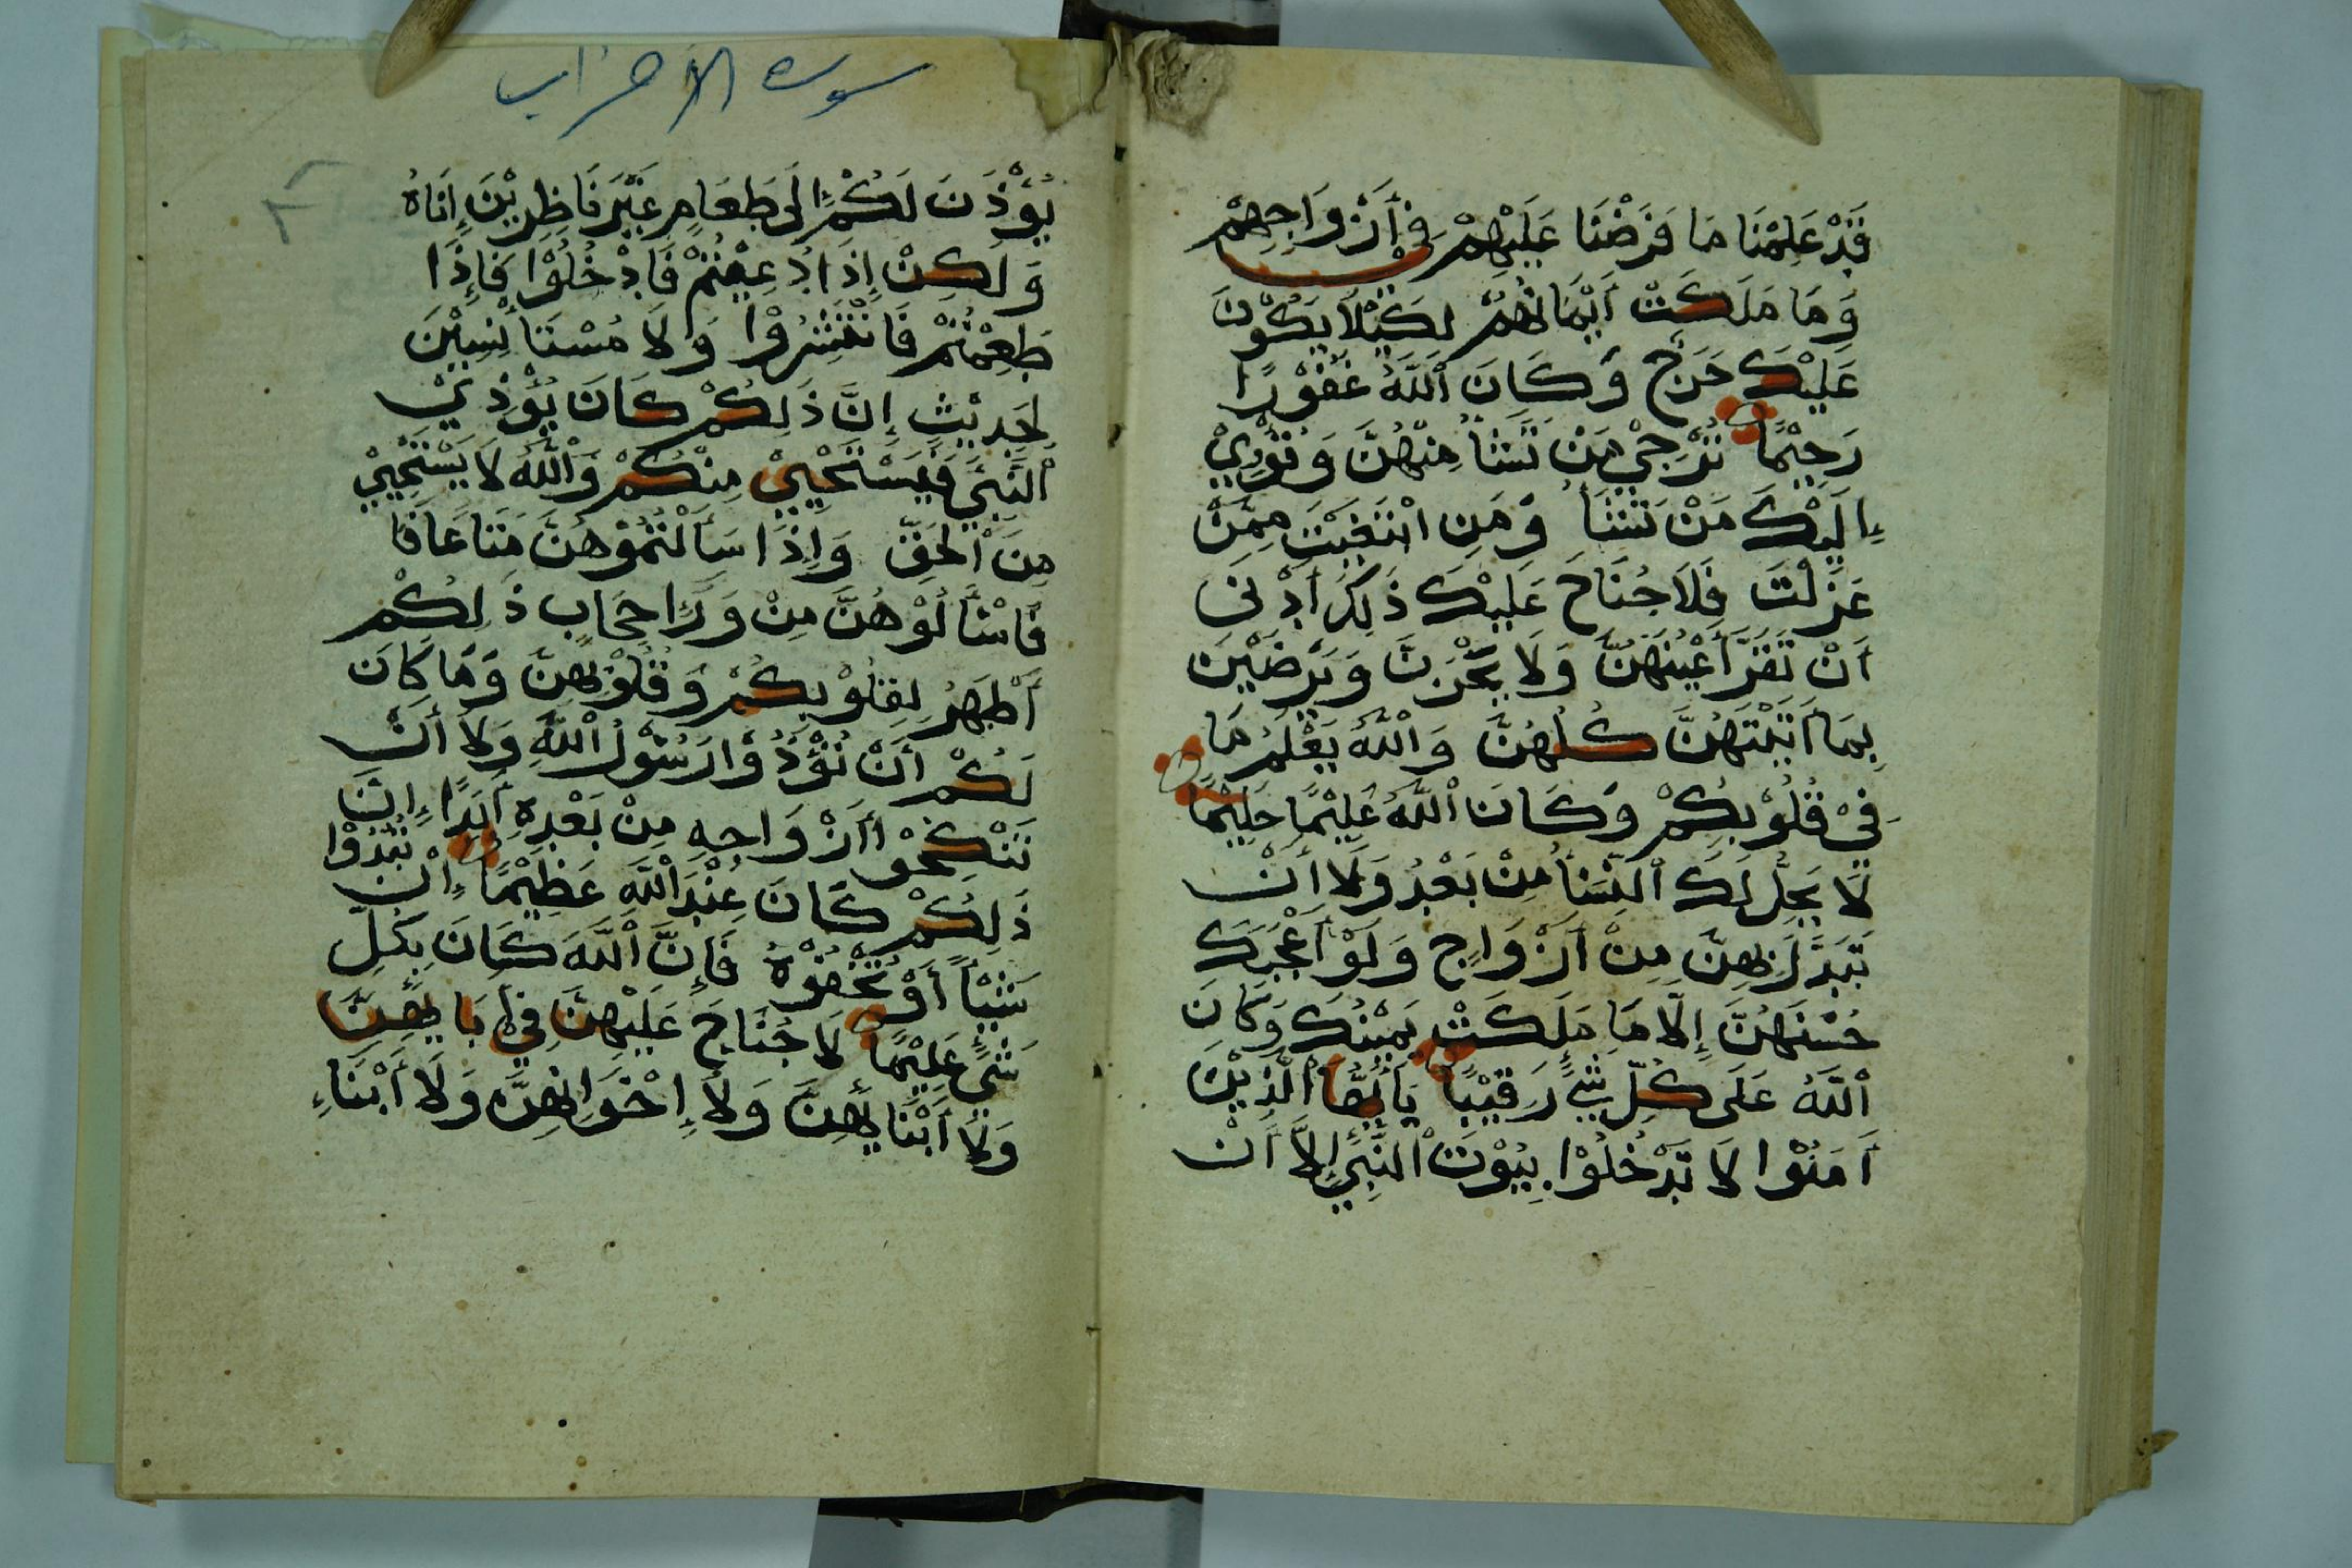 قَدْ عَلِمْنَا مَا فَرَضْنَا عَلَيْهِمْ فِيْ أَزْوَاجِهِمْ
وَمَا مَلَكَتْ أَيْمَانُهُمْ لِكَيْلَا يَكُوْنَ
عَلَيْكَ حَرَجٌ وَكَانَ اللَّهُ غَفُوْرًا
رَحِيْمًا تُرْجِيْ مَنْ تَشَأُ مِنْهُنَّ وَتُؤْوِيْ
إِلَيْكَ مَنْ تَشَأُ وَمَنِ ابْتَغَيْتَ مِمَّنْ
عَزَلْتَ فَلَا جُنَاحَ عَلَيْكَ ذَلِكَ أَدْنَى
أَنْ تَقَرَّ أَعْيُنُهُنَّ وَلَا يَحْزَنَّ وَيَرْضَيْنَ
بِمَا أَتَيْتَهُنَّ كُلُّهُنَّ وَاللَّهُ يَعْلَمُ مَا
فِيْ قُلُوْبِكُمْ وَكَانَ اللَّهُ عَلِيْمًا حَلِيْمًا
لَا يَحِلُّ لَكَ النِّسَأُ مِنْ بَعْدُ وَلَا أَنْ
تَبَدَّلَ بِهِنَّ مِنْ أَزْوَاجٍ وَلَوْ أَعْجَبَكَ
حُسْنُهُنَّ إِلَّا مَا مَلَكَتْ يَمِيْنُكَ وَكَانَ
اللَّهُ عَلَى كُلِّ شَيْءٍ رَقِيْبًا يَا أَيُّهَا الَّذِيْنَ
أَمَنُوْا لَا تَدْخُلُوْا بُيُوْتَ النَّبِيِّ إِلَّا أَنْ
سورة الأحزاب
يُؤْذَنَ لَكُمْ إِلَى طَعَامٍ غَيْرَ نَاظِرِيْنَ إِنَاهُ
وَلَكِنْ إِذَا دُعِيْتُمْ فَادْخُلُوْا فَإِذَا
طَعِمْتُمْ فَانْتَشِرُوْا وَلَا مُسْتَأْنِسِيْنَ
لِحَدِيْثٍ إِنَّ ذَلِكُمْ كَانَ يُؤْذِيْ
النَّبِيَّ فَيَسْتَحْيِيْ مِنْكُمْ وَاللَّهُ لَا يَسْتَحْيِيْ
مِنَ الْحَقِّ وَإِذَا سَأَلْتُمُوْهُنَّ مَتَاعًا
فَاسْأَلُوْهُنَّ مِنْ وَرَاِ حِجَابٍ ذَلِكُمْ
أَطْهَرُ لِقُلُوْبِكُمْ وَقُلُوْبِهِنَّ وَمَا كَانَ
لَكُمْ أَنْ تُؤْذُوْا رَسُوْلَ اللَّهِ وَلَا أَنْ
تَنْكِحُوْا أَزْوَاجَهِ مِنْ بَعْدِهِ أَبَدًا إِنَّ
ذَلِكُمْ كَانَ عِنْدَ اللَّهِ عَظِيْمًا إِنْ تُبْدُوْا
شَيْأً أَوْ تُخْفُوْهُ فَإِنَّ اللَّهَ كَانَ بِكُلِّ
شَيْءٍ عَلِيْمًا لَا جُنَاحَ عَلَيْهِنَّ فِيْ أَبَايِهِنَّ
وَلَا أَبْنَايِهِنَّ وَلَا إِخْوَانِهِنَّ وَلَا أَبْنَاءِ